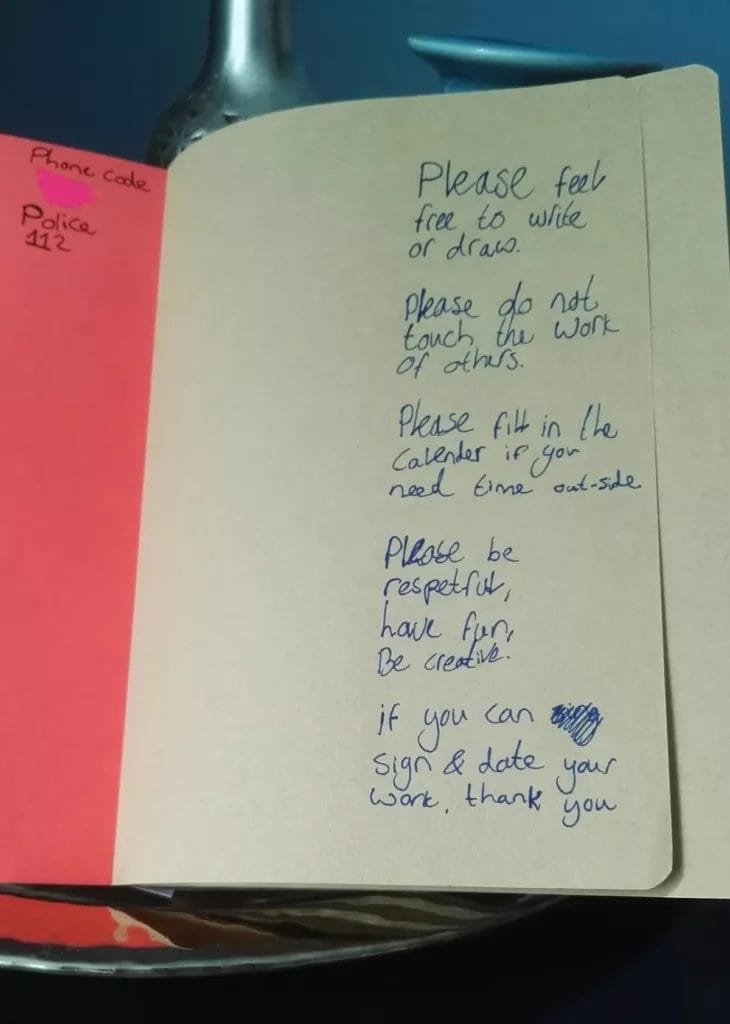 Phone code
Police
112
Please feel
free to write
or draw.
Please do not
touch the work
of others.
Please fill in the
Calender if you
need time out-side
Please be
respetful,
have fun,
Be creative.
if you can
sign & date your
work, thank you